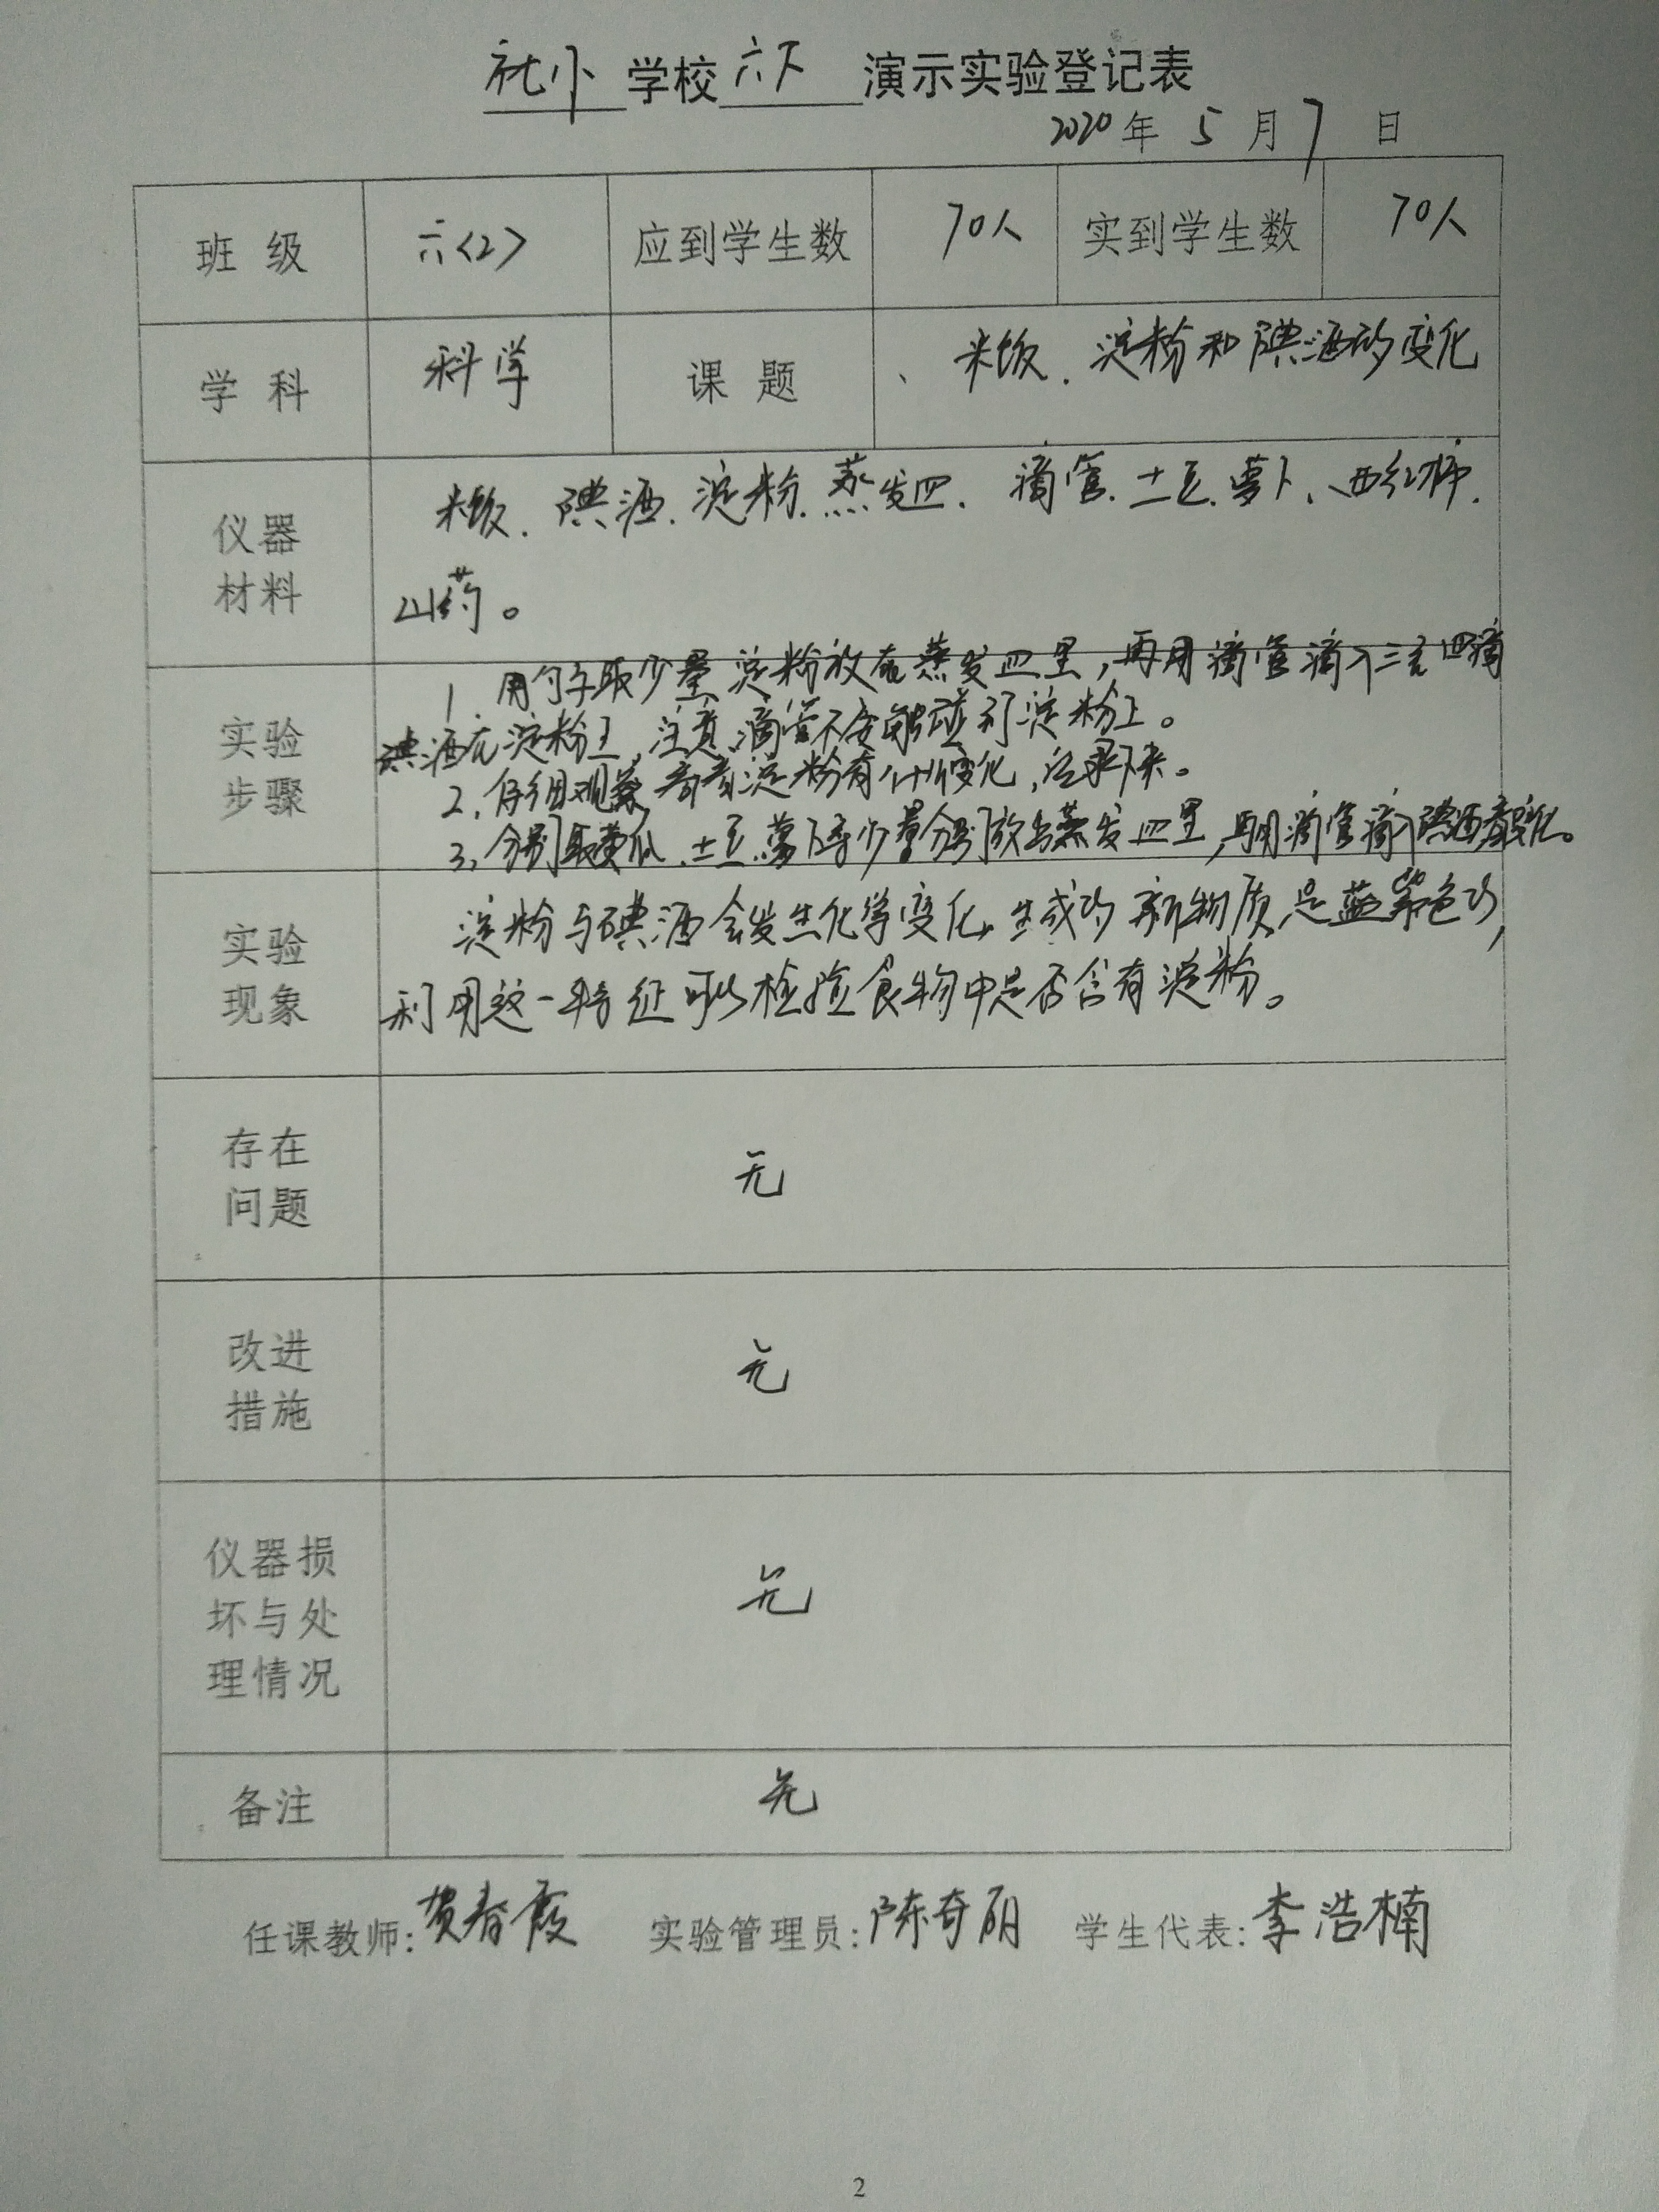 社小学校六下演示实验登记表
2020年5月7日
班级 六<2> 应到学生数 70人 实到学生数 70人
学科 科学 课题 、米饭、淀粉和碘酒的变化
仪器材料 米饭、碘酒、淀粉、蒸发皿、滴管、土豆、萝卜、西红柿、
山药。
实验步骤 1、用勺子取少量淀粉放在蒸发皿里,再用滴管滴入三至四滴
碘酒在淀粉上,注意,滴管不要触碰到淀粉上。
2、仔细观察 看看淀粉有什么变化,记录下来。
3、分别取黄瓜、土豆、萝卜等少量分别放与蒸发皿里,再用滴管滴入碘酒看变化。
实验现象 淀粉与碘酒会发生化学变化,生成的新物质是蓝紫色的,
利用这一特征可以检验食物中是否含有淀粉。
存在问题 无
改进措施 无
仪器损坏与处理情况 无
备注 无
任课教师:贺春霞 实验管理员:陈奇丽 学生代表:李浩楠
2